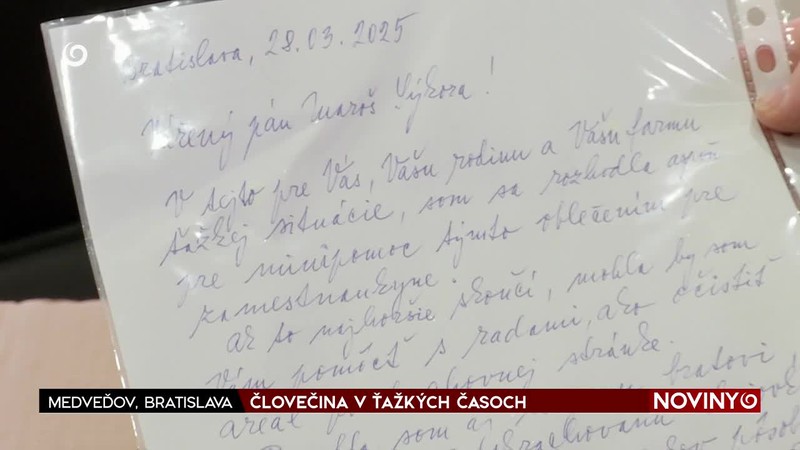 Bratislava, 28.03.2025
Vážený pán Maroš Výkora!
V tejto pre Vás, Vašu rodinu a Vašu farmu
ťažkej situácie, som sa rozhodla aspoň
pre minipomoc týmto oblečením pre
zamestnankyne.
ak to najhoršie skončí, mohla by som
Vám pomôcť s radami, ako očistiť
areál po stránke.
som aj bratovi
MEDVEĎOV, BRATISLAVA
ČLOVEČINA V ŤAŽKÝCH ČASOCH
NOVINY